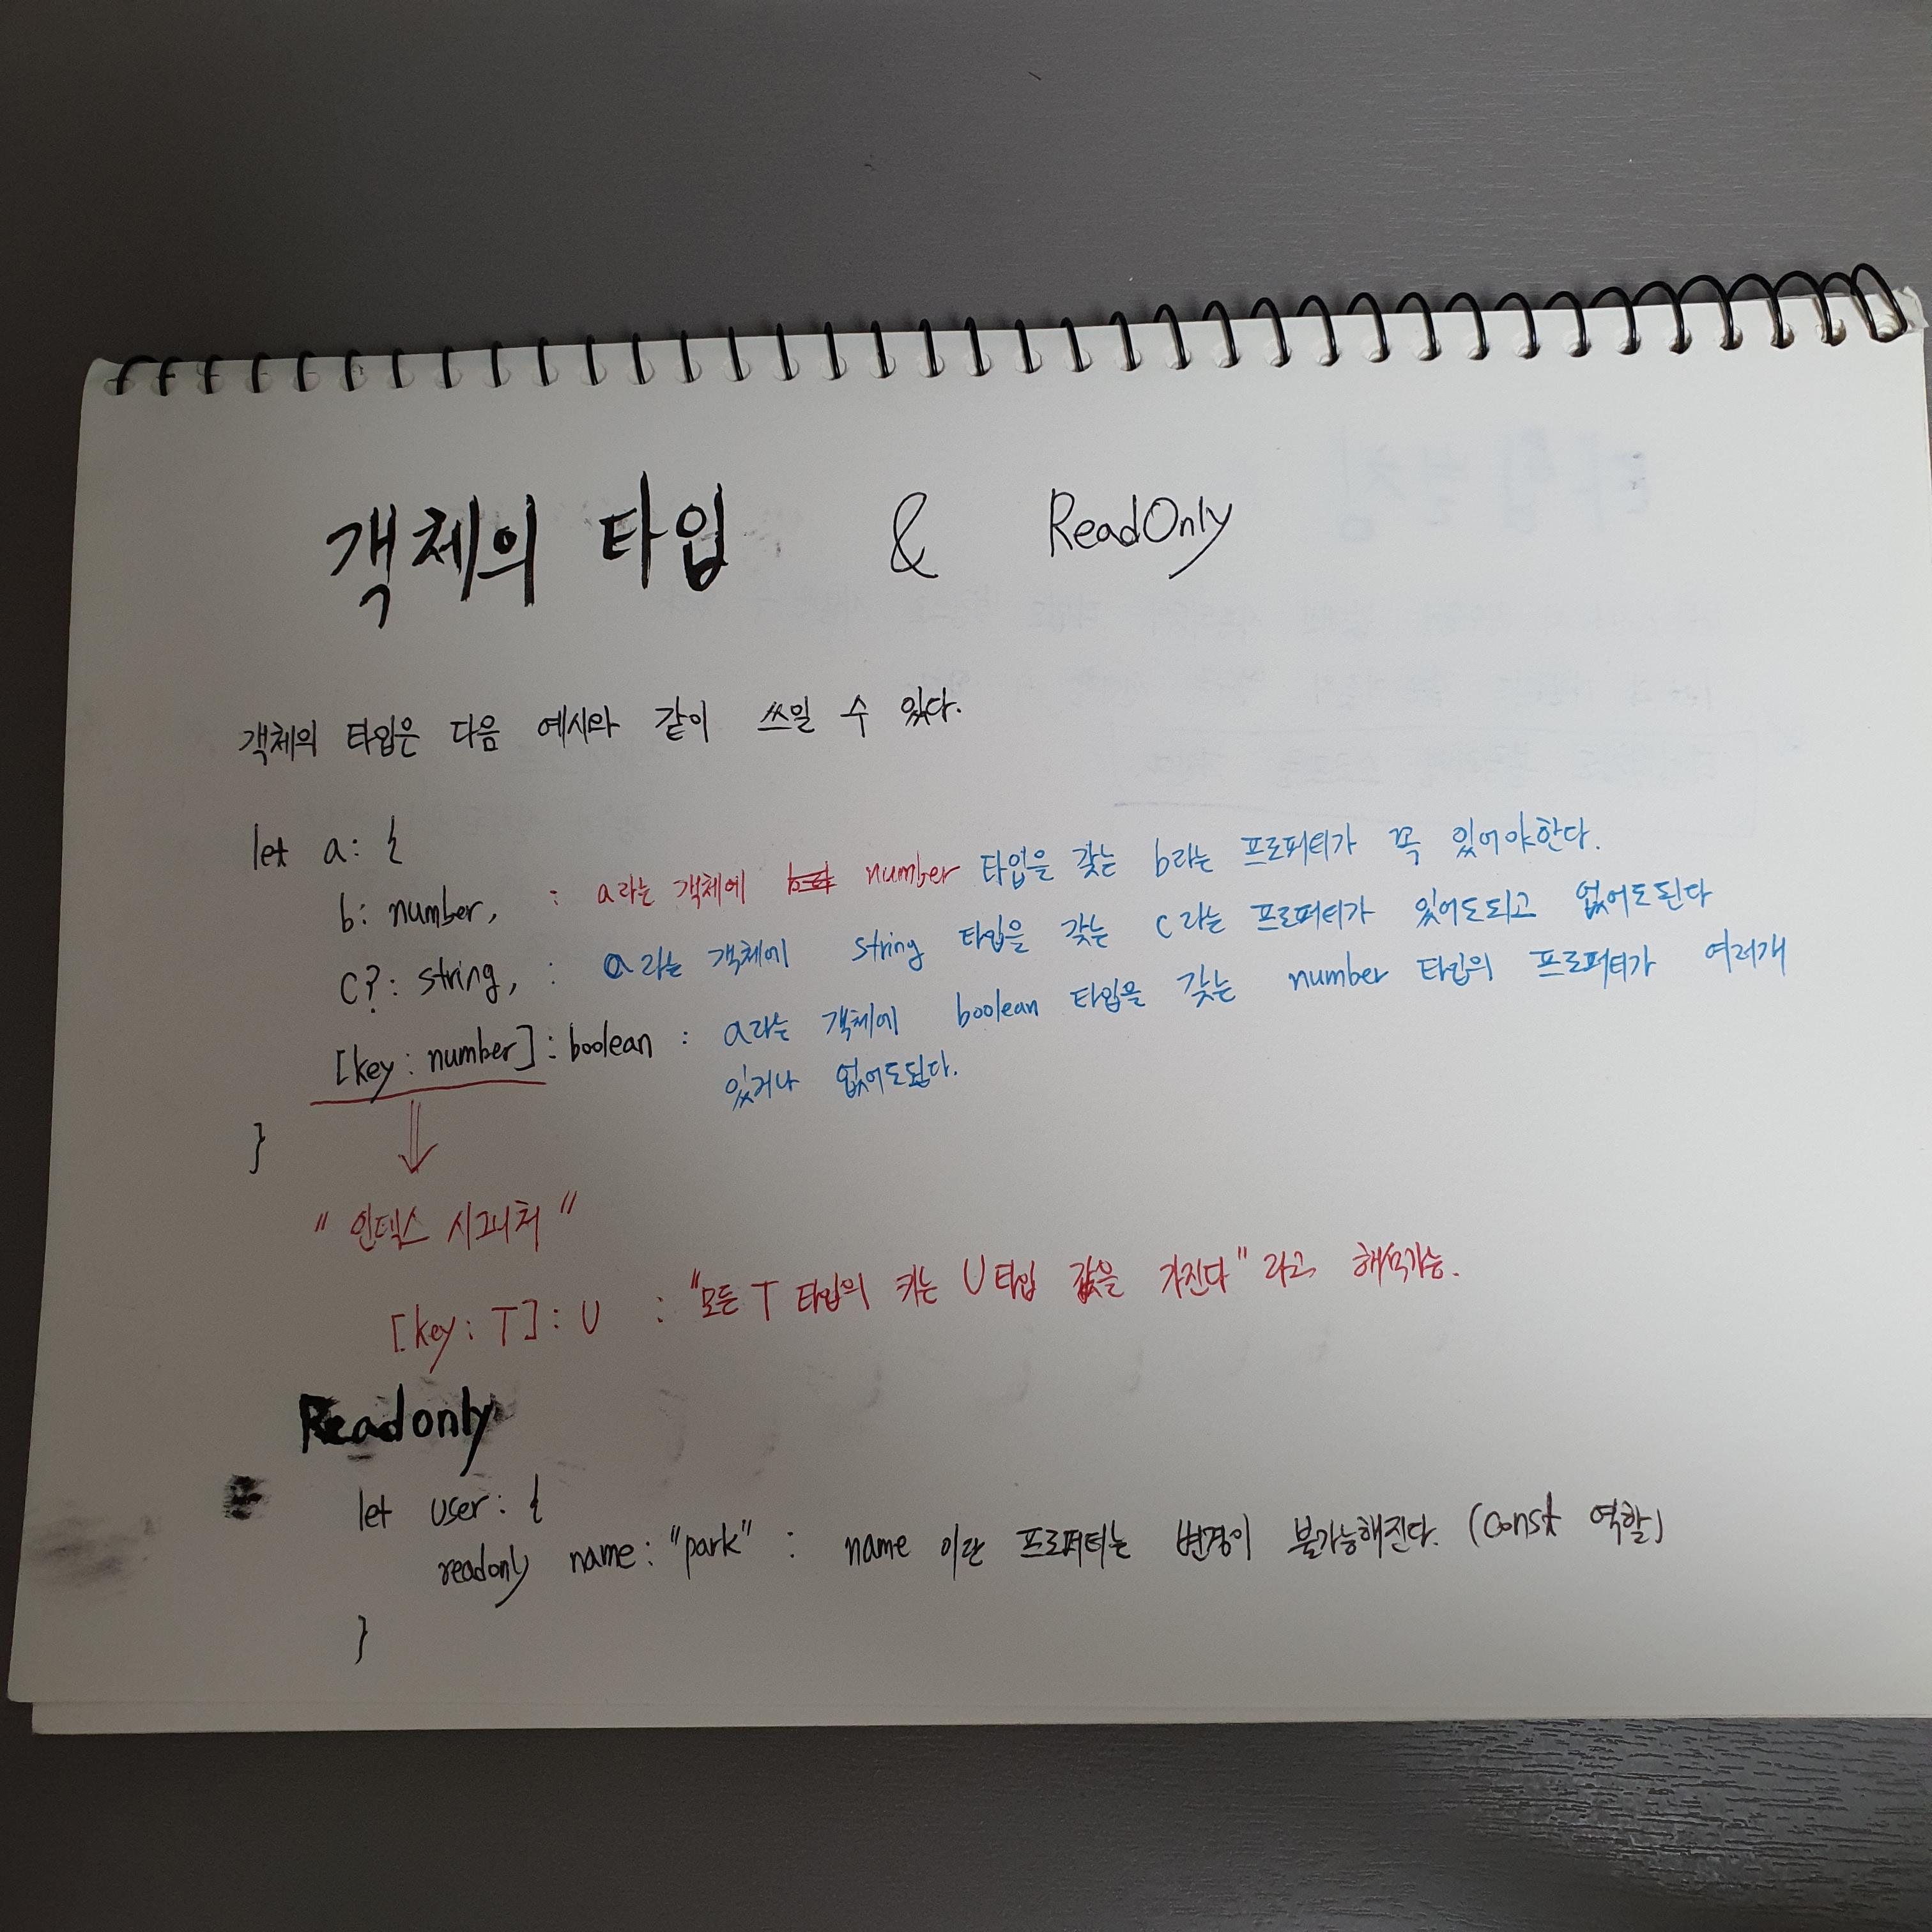 객체의 타입 & ReadOnly
객체의 타입은 다음 예시와 같이 쓰일 수 있다.
let a: {
b: number, : a라는 객체에 number 타입을 갖는 b라는 프로퍼티가 꼭 있어야한다.
c?: string, : a라는 객체에 string 타입을 갖는 c라는 프로퍼티가 있어도되고 없어도된다
[key: number]: boolean : a라는 객체에 boolean 타입을 갖는 number 타입의 프로퍼티가 여러개
있거나 없어도된다.
}
" 인덱스 시그니처 "
[key: T]: U : "모든 T 타입의 키는 U타입 값을 가진다" 라고 해석가능.
Readonly
let user: {
readonly name: "park" : name 이란 프로퍼티는 변경이 불가능해진다. (const 역할)
}